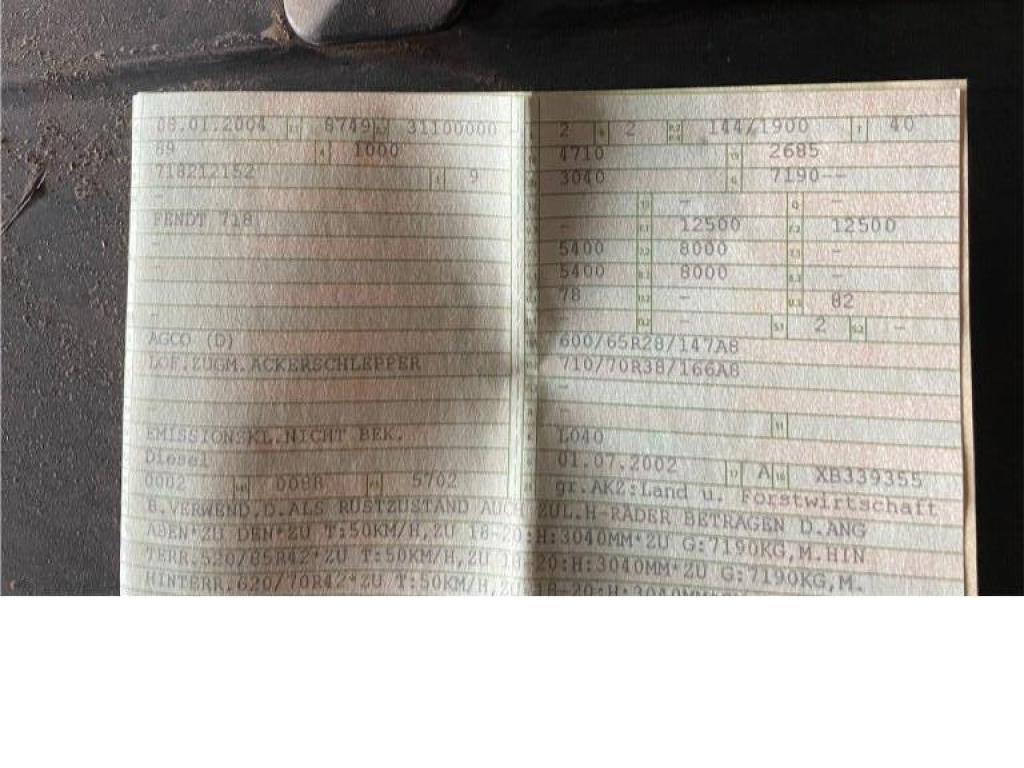 08.01.2004 8749 31100000 -
89 1000
718212152 9
-
FENDT 718
-
-
-
-
AGCO (D)
LOF.ZUGM.ACKERSCHLEPPER
-
-
-
EMISSIONSKL.NICHT BEK.
Diesel
0002 008R 5702
2 2 144/1900 40
4710 2685
3040 7190--
- -
- 12500 12500
5400 8000 -
5400 8000 -
78 - 82
- 2 -
600/65R28/147A8
710/70R38/166A8
-
-
L040
01.07.2002 A XB339355
gr.AKZ:Land u. Forstwirtschaft
B.VERWEND.D.ALS RÜSTZUSTAND AUCH ZUL.H-RÄDER BETRAGEN D.ANG
ABEN*ZU DEN*ZU T:50KM/H,ZU 18-20:H:3040MM*ZU G:7190KG,M.HIN
TERR.520/85R42*ZU T:50KM/H,ZU 18-20:H:3040MM*ZU G:7190KG,M.
HINTERR.620/70R42*ZU T:50KM/H,ZU 18-20:H:3040MM*